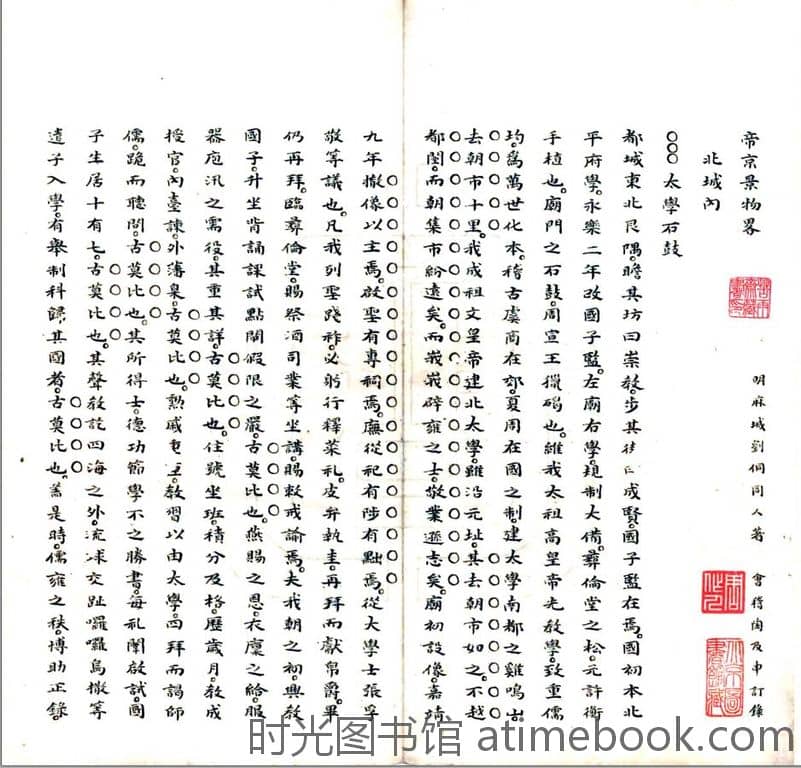 帝京景物畧
北城內
明麻城劉侗同人著
會稽陶及申訂錄
○○○太學石鼓
都城東北艮隅。瞻其坊曰崇教。步其街曰成賢。國子監在焉。國初本北
平府學。永樂二年改國子監。左廟右學。規制大備。彝倫堂之松。元許衡
手植也。廟門之石鼓。周宣王獵碣也。維我太祖高皇帝光教學。致重儒
均。爲萬世化本。稽古虞商在郊。夏周在國之制。建太學南都之雞鳴山。
去朝市十里。我成祖文皇帝建北太學。雖沿元址。其去朝市如之。不越
都闉。而朝集市紛遠矣。而峩峩辟雍之士。敬業遜志矣。廟初設像。嘉靖
九年撤像以主焉。啟聖有專祠焉。廡從祀有陟有黜焉。從大學士張孚
敬等議也。凡我列聖踐祚。必躬行釋菜礼。皮弁執圭。再拜而獻帛爵。畢
仍再拜。臨彝倫堂。賜祭酒司業等坐講。賜敕戒諭焉。夫我朝之初。興教
國子。升坐背誦課試點閘假限之嚴。古莫比也。燕賜之恩。衣廩之給。服
器庖之需役。其重其詳。古莫比也。住號坐班。積分及格。歷歲月。教成
授官。內臺諫。外藩臬。古莫比也。勲戚教習以由太學。四拜而謁師
儒。跪而聽問。古莫比也。其所得士。德功節學不之勝書。每礼闈啟試。國
子生居十有七。古莫比也。其聲教訖四海之外。流球交趾囉囉烏撒等
遣子入學。有舉制科歸其國者。古莫比也。蓋是時。儒雍之秩。博助正錄。
时光图书馆 atimebook.com